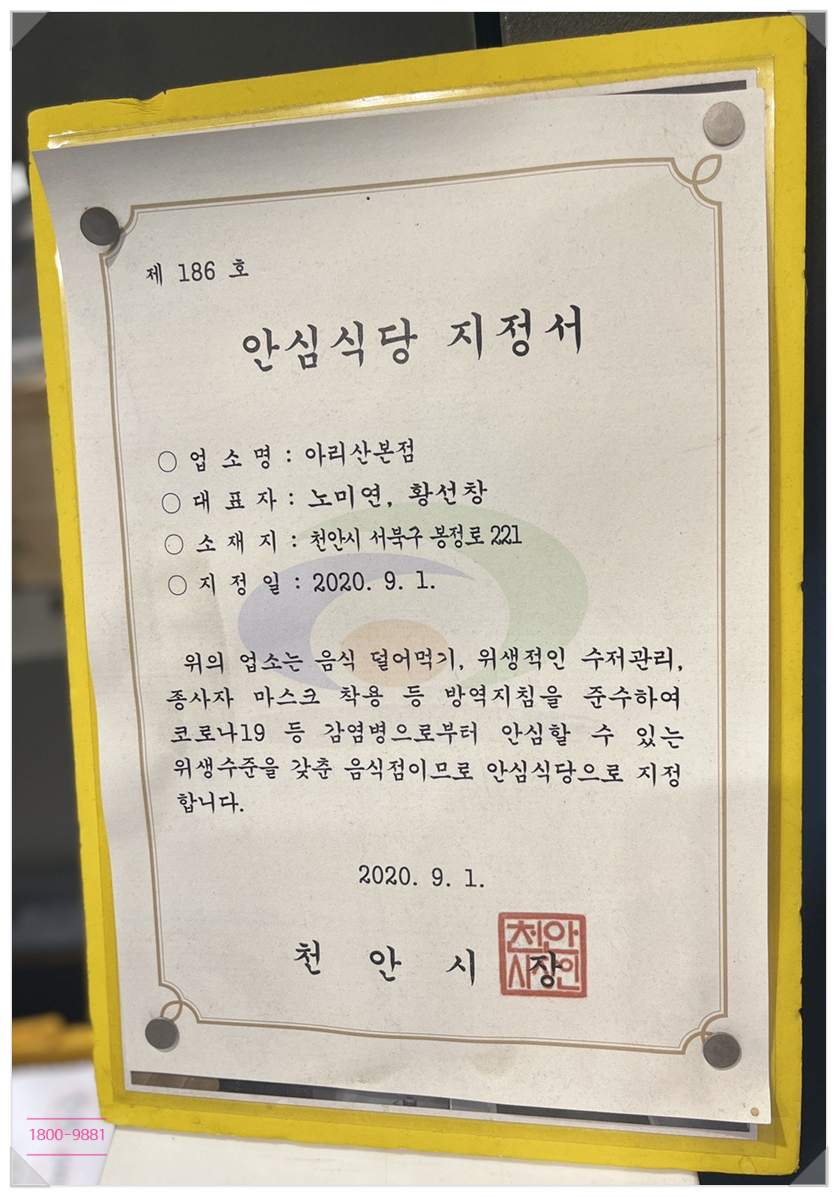 제 186 호
안심식당 지정서
○ 업 소 명 : 아리산본점
○ 대 표 자 : 노미연, 황선창
○ 소 재 지 : 천안시 서북구 봉정로 221
○ 지 정 일 : 2020. 9. 1.
위의 업소는 음식 덜어먹기, 위생적인 수저관리,
종사자 마스크 착용 등 방역지침을 준수하여
코로나19 등 감염병으로부터 안심할 수 있는
위생수준을 갖춘 음식점이므로 안심식당으로 지정
합니다.
2020. 9. 1.
천 안 시 장
천안
시장인
1800-9881